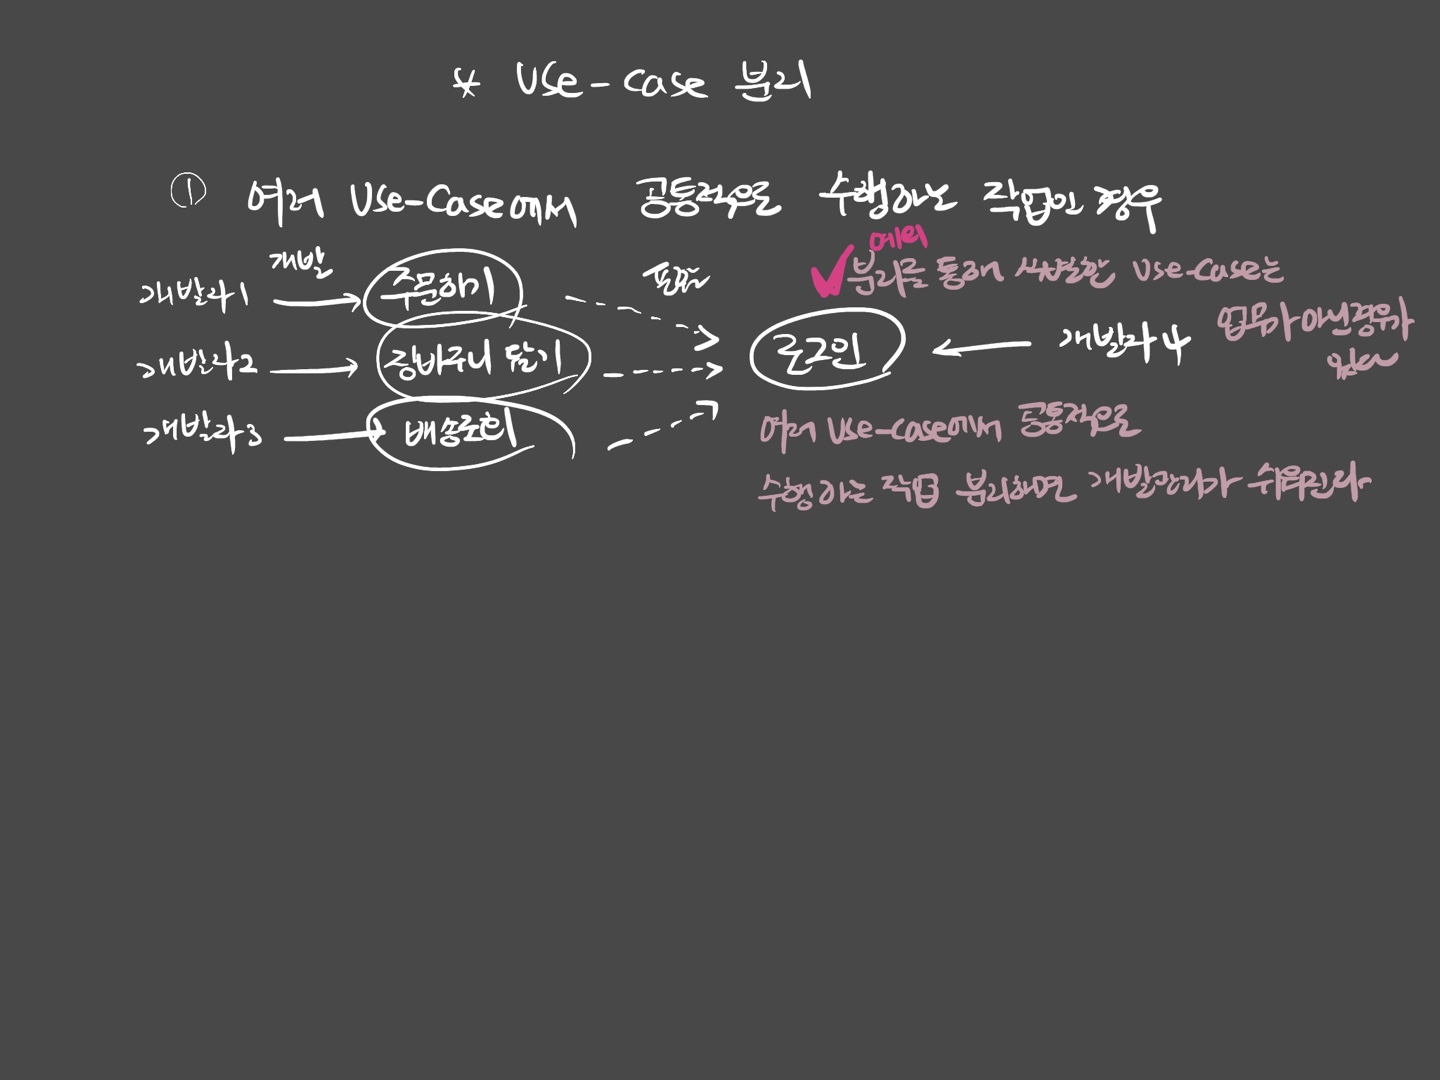 * Use-case 분리
① 여러 Use-Case에서 공통적으로 수행하는 작업인 경우
예외
개발자1 개발 주문하기 포함 분리를 통해 식별한 Use-Case는
개발자2 장바구니 담기 로그인 개발자4 업무가 아닌경우가
있다
개발자3 배송조회 여러 Use-Case에서 공통적으로
수행하는 작업 분리하면 개발관리가 쉬워진다